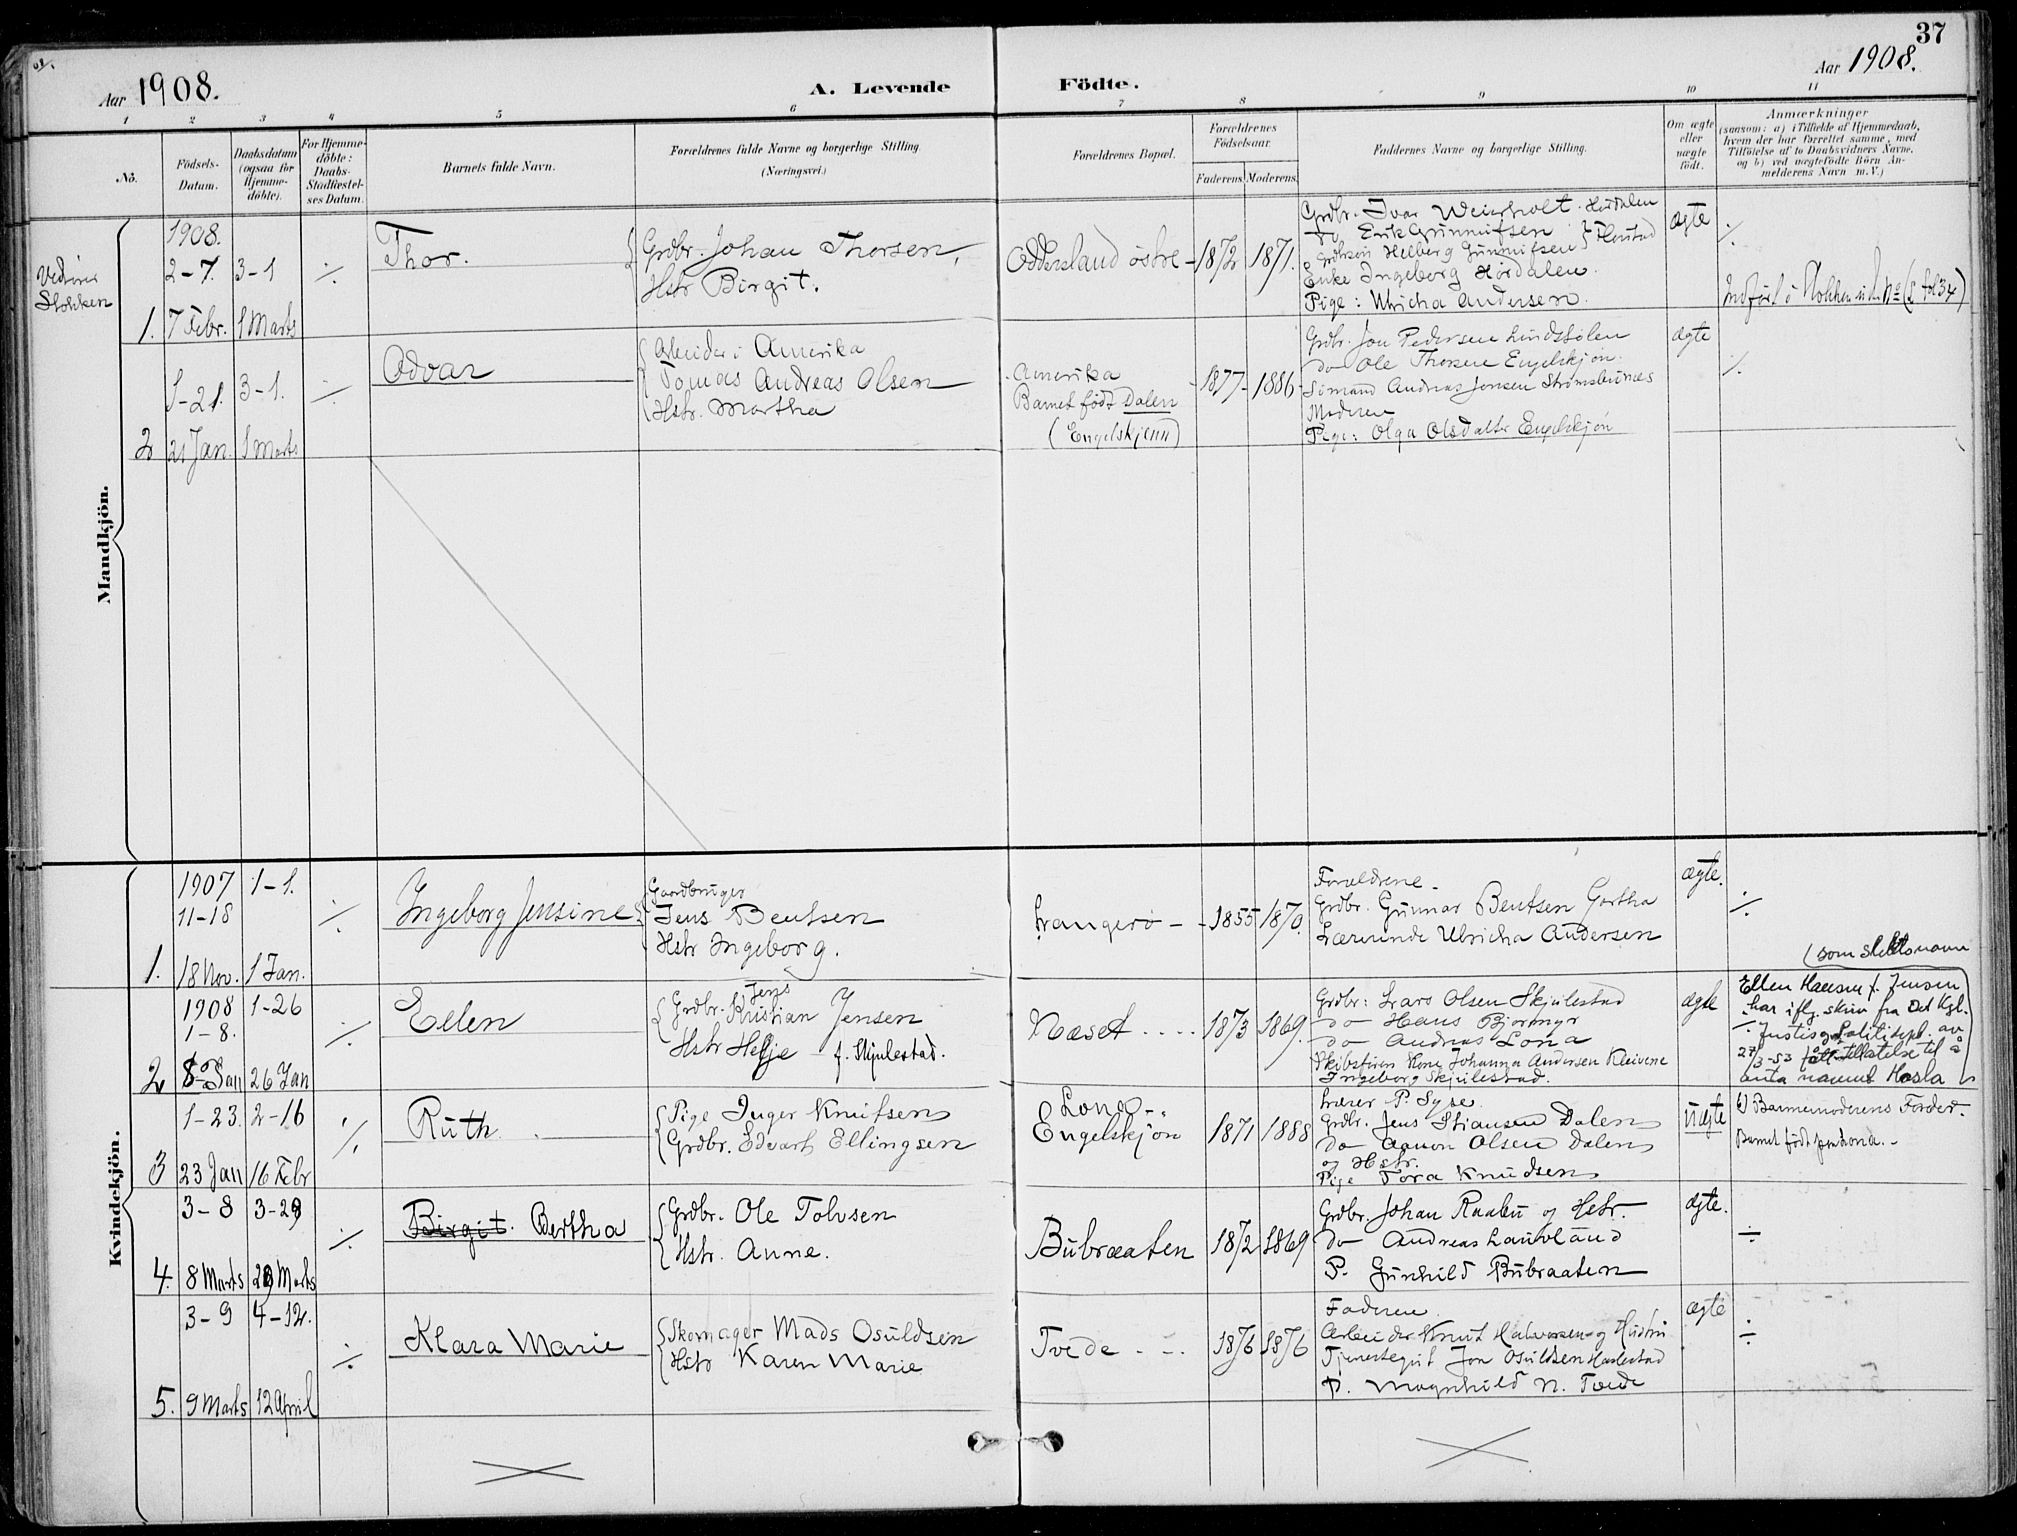 37
Aar 1908.
A. Levende Födte.
Aar 1908.
1 2 3 4 5 6 7 8 9 10 11
No.
Födsels-Datum.
Daabsdatum (ogsaa for Hjemme-döbte).
For Hjemme-döbte: Daabs-Stadfæstel-ses Datum.
Barnets fulde Navn.
Forældrenes fulde Navne og borgerlige Stilling.
(Næringsvei.)
Forældrenes Bopæl.
Forældrenes Födselsaar.
Faderens. Moderens.
Faddernes Navne og borgerlige Stilling.
Om ægte eller uægte födt.
Anmærkninger
(saasom: a) i Tilfælde af Hjemmedaab,
hvem der har forrettet samme, med
Tilföielse af to Daabsvidners Navne,
og b) ved uægtefödte Börn An-
melderens Navn m. V.)
Mandkjön.
Stokken
1.
1908.
2-7.
7 Febr.
3-1
1 Marts
Thor.
Grdbr. Johan Thorsen,
Hstr Birgit.
Oddersland östre
1872
1871.
Grdbr. Ivar Weierholt. Hørdalen
do Erik Gunnufsen
Helberg Gunnufsen
Enke Ingeborg Hørdalen.
Pige: Ulricha Andersen.
ægte
2
1-21.
21 Jan.
3-1.
1 Marts
Odvar
Arbeider i Amerika
Tomas Andreas Olsen
Hstr. Martha
Amerika
Barnet født Dalen
(Engelskjønn)
1877
1886
Grdbr. Jon Pedersen Lindstølen
do Ole Thorsen Engelskjøn.
Sømand Andreas Jensen Strømsbunæs
Moderen
Pige: Olga Olsdatter Engelskjøn
ægte
Kvindekjön.
1.
1907
11-18
18 Nov.
1-1.
1 Jan.
Ingeborg Jensine
Gaardbruger
Jens Bentsen
Hstr Ingeborg.
Langerö
1855
1870.
Forældrene.
Grdbr. Gunnar Bentsen Gortha
Lærerinde Ulricha Andersen
ægte.
2
1908
1-8.
8 Jan
1-26
26 Jan
Ellen
Jens
Grdbr. Kristian Jensen
Hstr Helje f. Skjulestad.
Næset
1873
1869.
Grdbr: Lars Olsen Skjulestad
do Hans Bjormyr
do Andreas Lona
Johanna Andersen Kleivene
Ingeborg Skjulestad.
ægte
(som slektsnavn
Ellen Hansen f. Jensen
har iflg. skriv fra Det Kgl.
Justis og Politidept. av
27/3-53 fått tillatelse til å
anta navnet Hasla
3
1-23.
23 Jan
2-16
16 Febr
Ruth
Pige Inger Knutsen
Grdbr. Edvart Ellingsen
Lona
Engelskjøn
1871
1888
Lærer P. Syse
Grdbr. Jens Stiansen Dalen
do Aanon Olsen Dalen
og Hstr.
Pige Tora Knudsen
uægte
Barnemoderens Forder.
Barnet født paa Lona.
4.
3-8
8 Marts
3-29
29 Marts
Birgit. Bertha
Grdbr. Ole Tolvsen
Hstr. Anne.
Bubraaten
1872
1869
Grdbr. Johan Raabu og Hstr.
do Andreas Lauvland
P. Gunhild Bubraaten
ægte.
5.
3-9
9 Marts
4-12.
12 April
Klara Marie
Skomager Mads Osuldsen
Hstr Karen Marie
Tvede
1876
1876
Faderen.
Arbeider Knut Halvorsen og Hustru
Tjenestegut Jon Osuldsen Haslestad
P. Magnhild N. Tvede
ægte